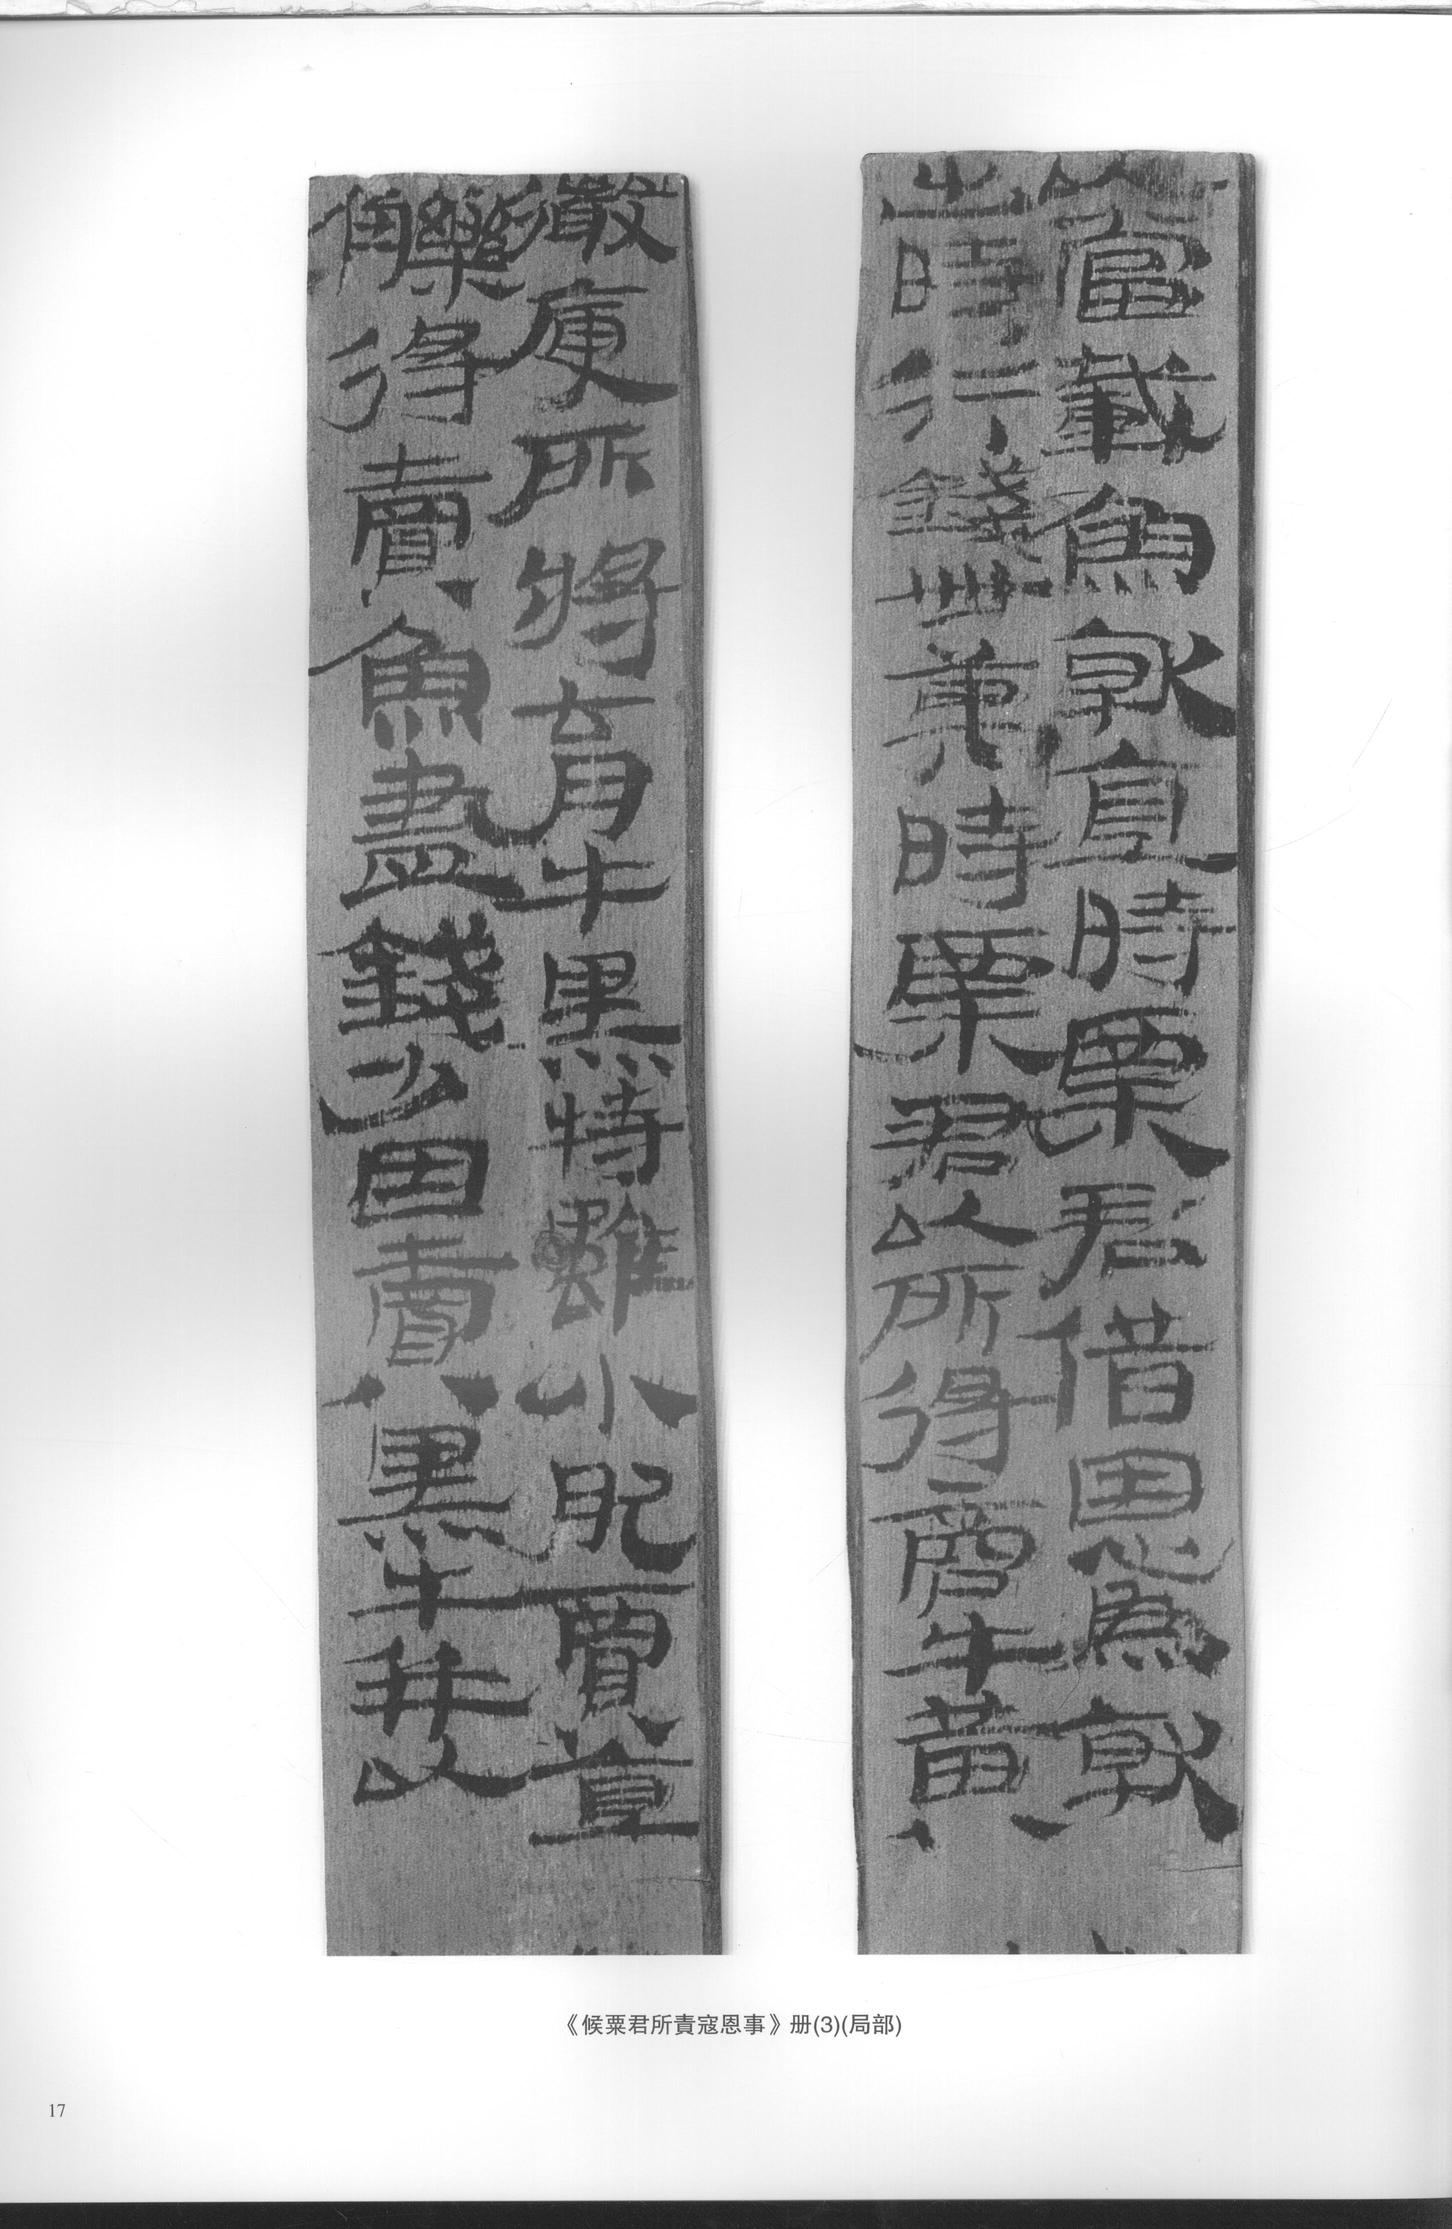 以當載魚就直時粟君借恩為就
出時行錢卌萬時粟君以所得商牛黃
微庾所將育牛黑特雖小肥賈直
觻得賣魚盡錢少因賣黑牛并以
《候粟君所責寇恩事》册(3)(局部)
17